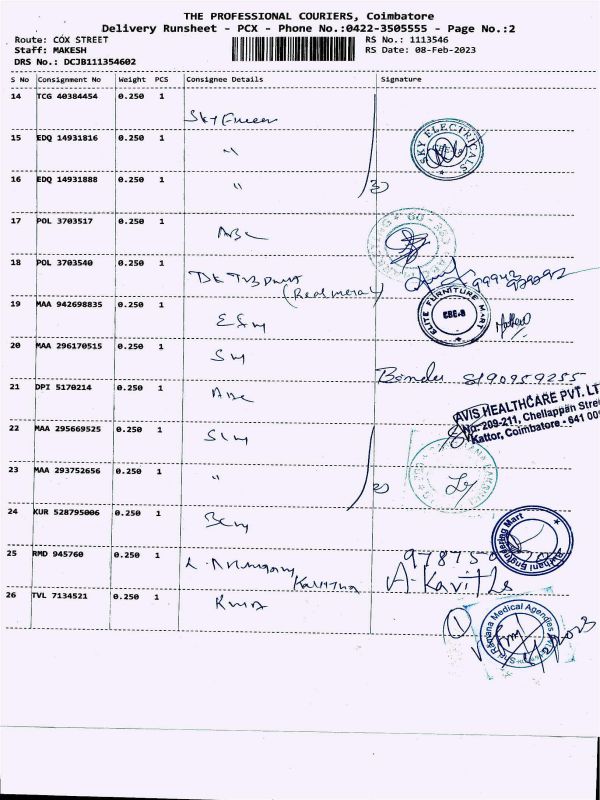 THE PROFESSIONAL COURIERS, Coimbatore
Delivery Runsheet - PCX - Phone No.:0422-3505555 - Page No.:2
Route: COX STREET
RS No.: 1113546
Staff: MAKESH
RS Date: 08-Feb-2023
DRS No.: DCJB111354602
S No Consignment No Weight PCS Consignee Details Signature
14 TCG 40384454 0.250 1
15 EDQ 14931816 0.250 1 "
SKY ELECTRICALS
16 EDQ 14931888 0.250 1 "
17 POL 3703517 0.250 1
18 POL 3703540 0.250 1
19 MAA 942698835 0.250 1
ELITE FURNITURE MART
20 MAA 296170515 0.250 1
8190959255
21 DPI 5170214 0.250 1
AVIS HEALTHCARE PVT. LT
No: 209-211, Chellappan Stre
Kattor, Coimbatore - 641 009
22 MAA 295669525 0.250 1
23 MAA 293752656 0.250 1 "
24 KUR 528795006 0.250 1
Engineering Mart
25 RMD 945760 0.250 1
Kavitha
A. Kavitha
26 TVL 7134521 0.250 1
Ramana Medical Agencies